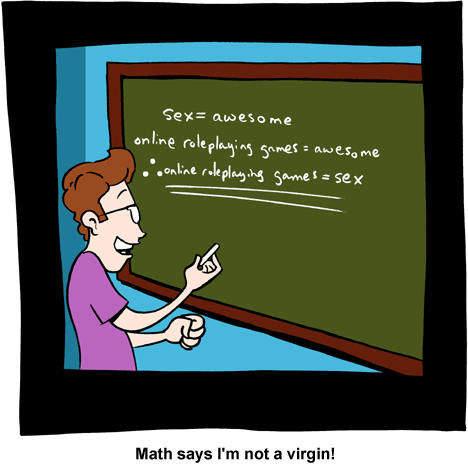 sex = awesome
online roleplaying games = awesome
∴ online roleplaying games = sex
Math says I'm not a virgin!